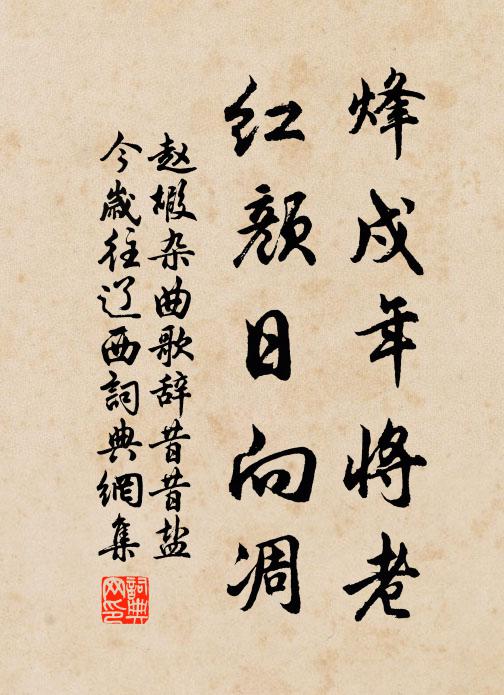 烽戍年将老
红颜日向凋
赵嘏杂曲歌辞昔昔盐
今歳往辽西詞典網集
詞典网印